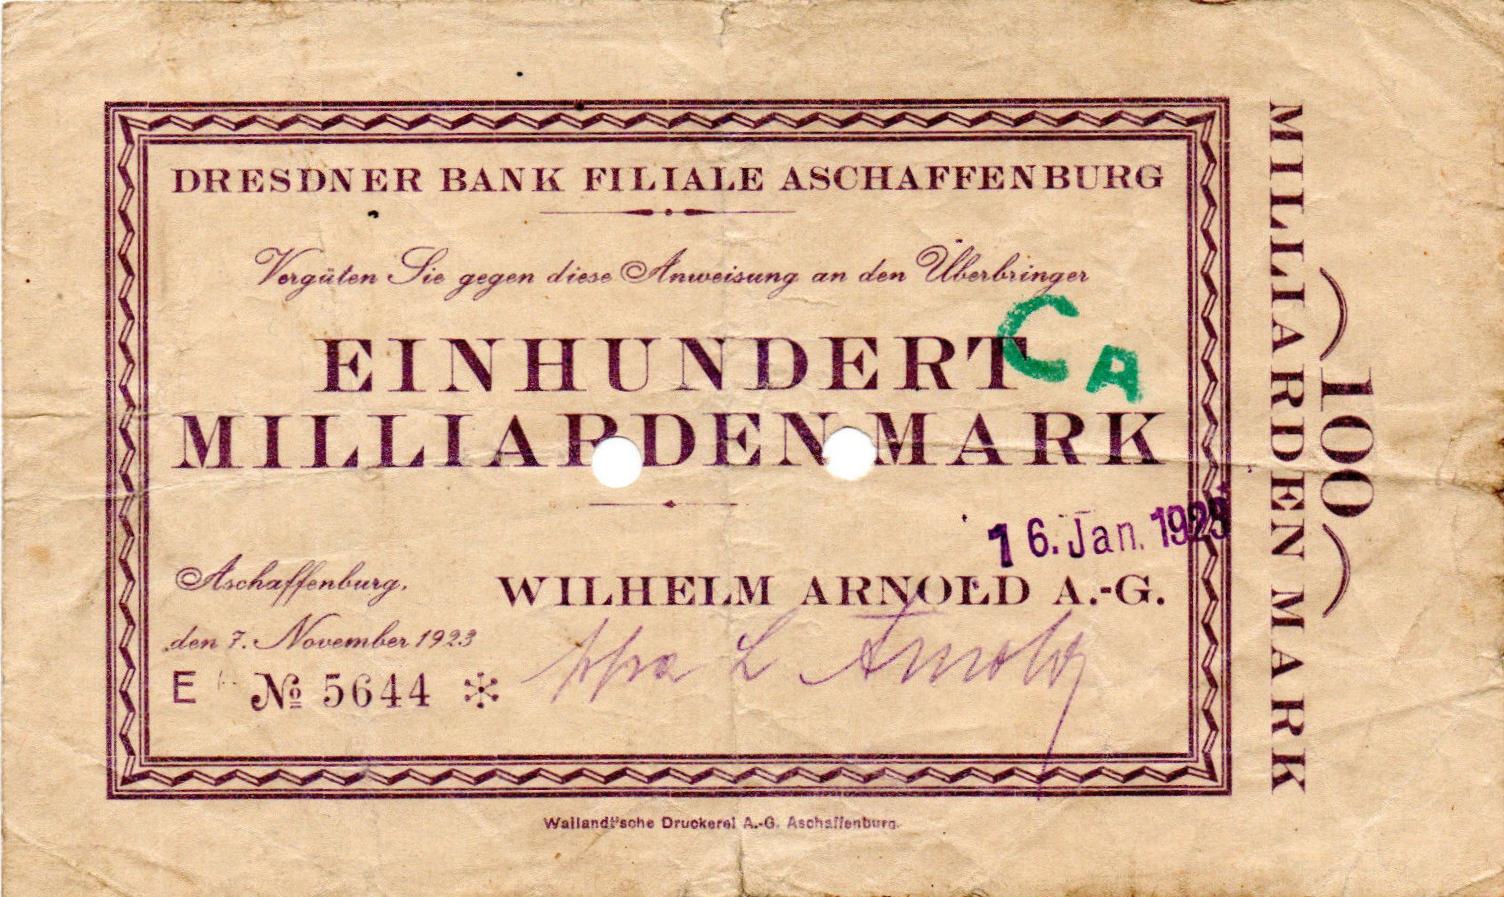 DRESDNER BANK FILIALE ASCHAFFENBURG
Vergüten Sie gegen diese Anweisung an den Überbringer
EINHUNDERT
CA
MILLIARDEN MARK
16. Jan. 192
Aschaffenburg,
WILHELM ARNOLD A.-G.
den 7. November 1923
ppa L Arnold
E № 5644 *
Wailandt'sche Druckerei A.-G. Aschaffenburg.
MILLIARDEN MARK
100